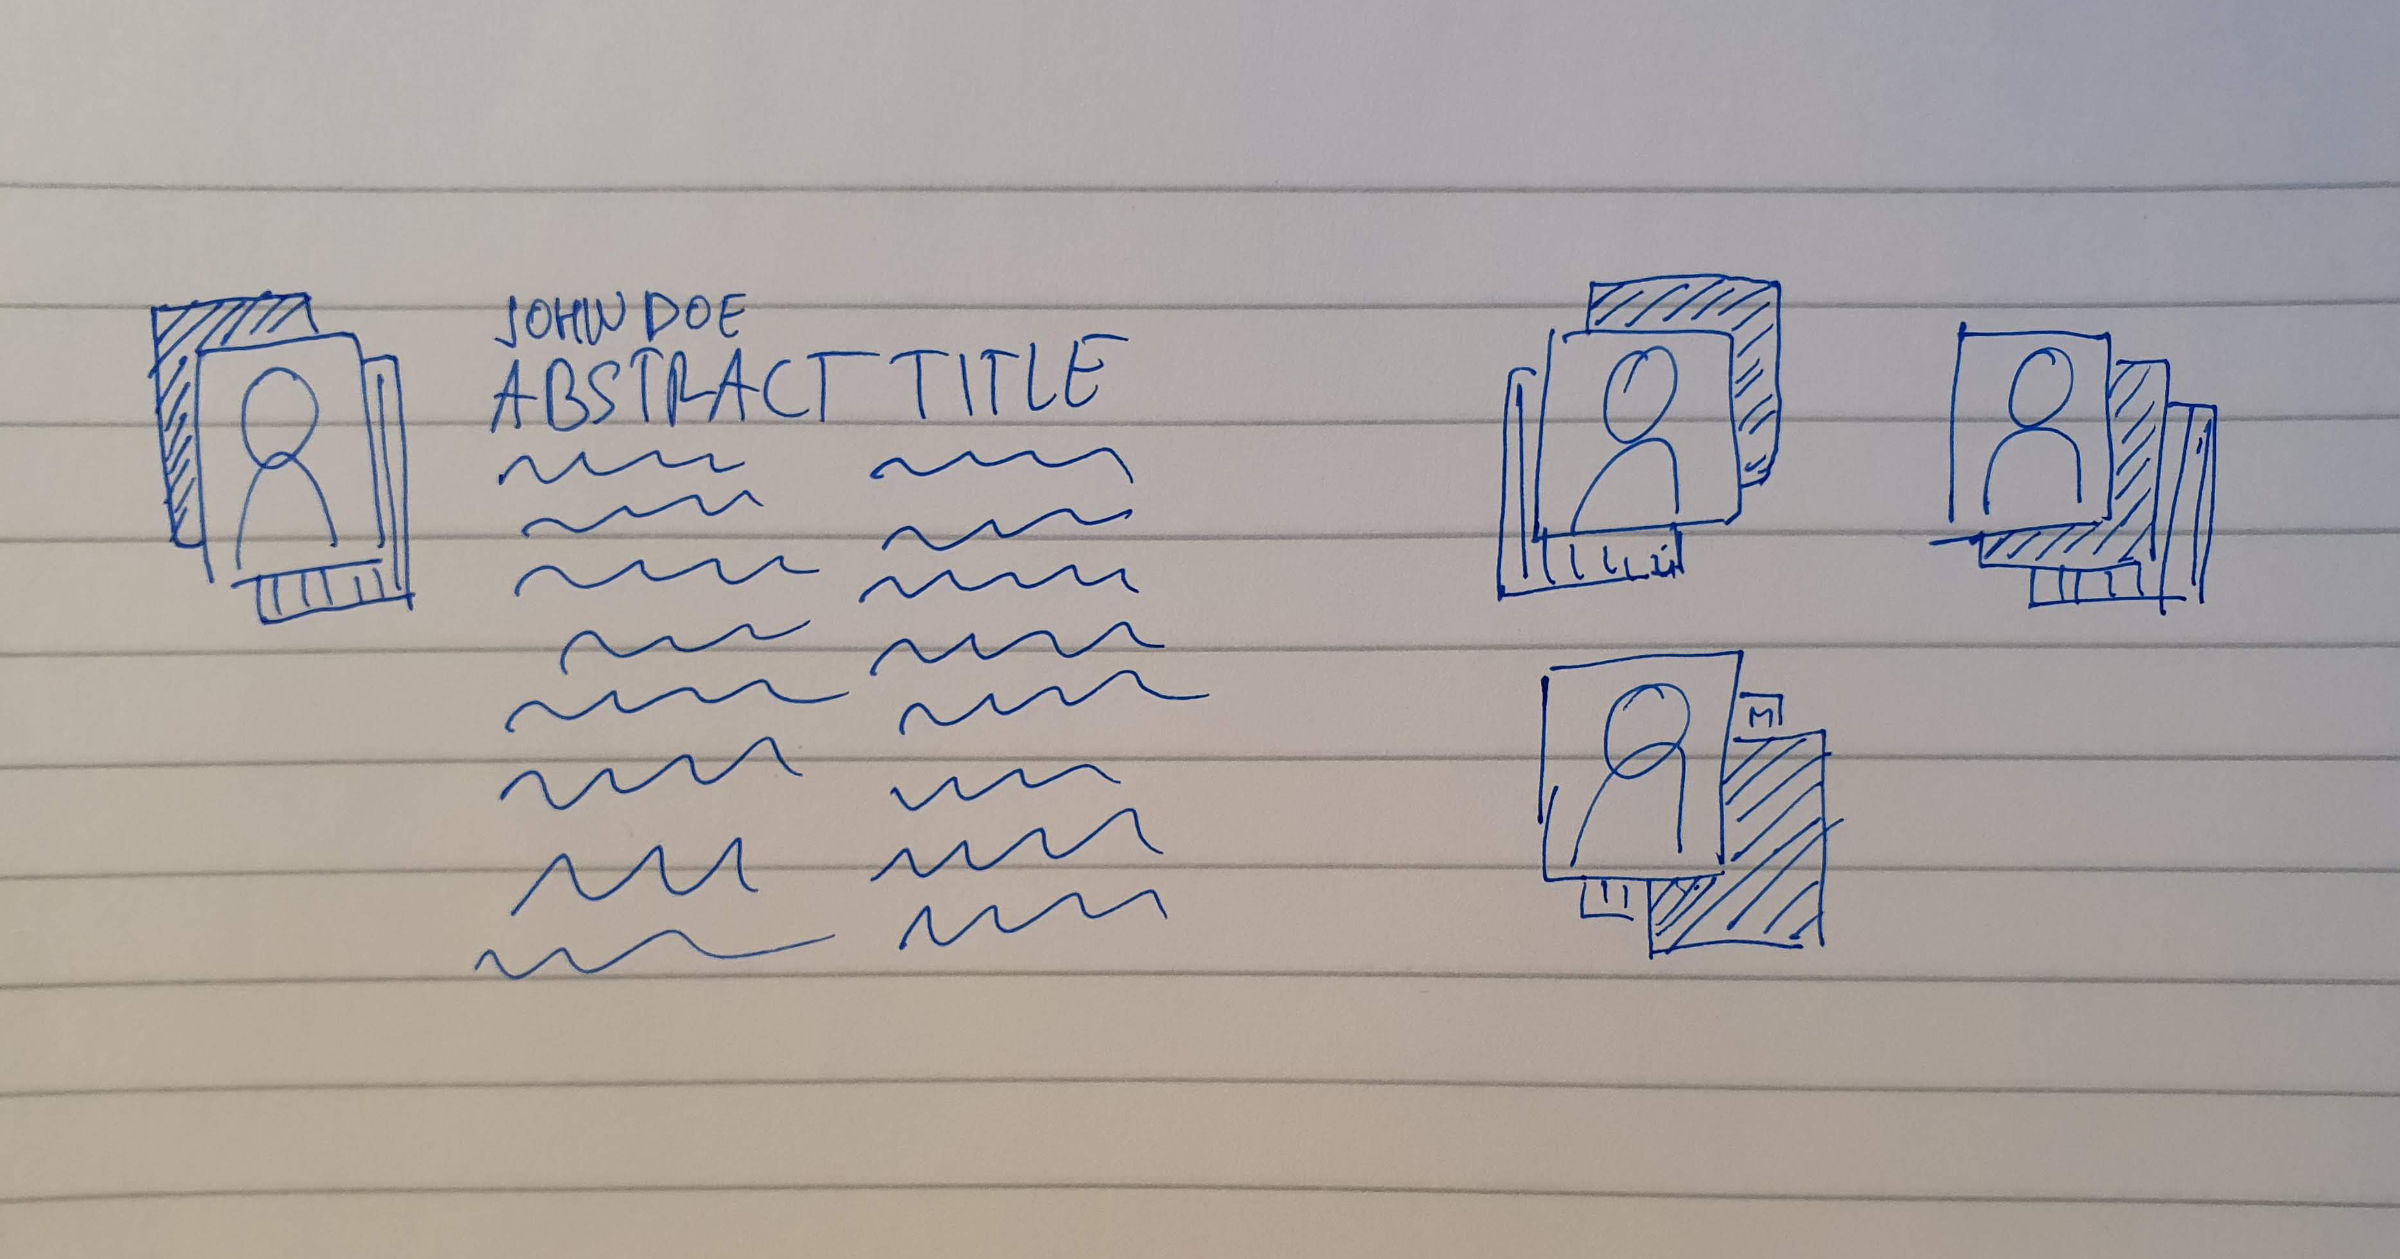 JOHN DOE
ABSTRACT TITLE